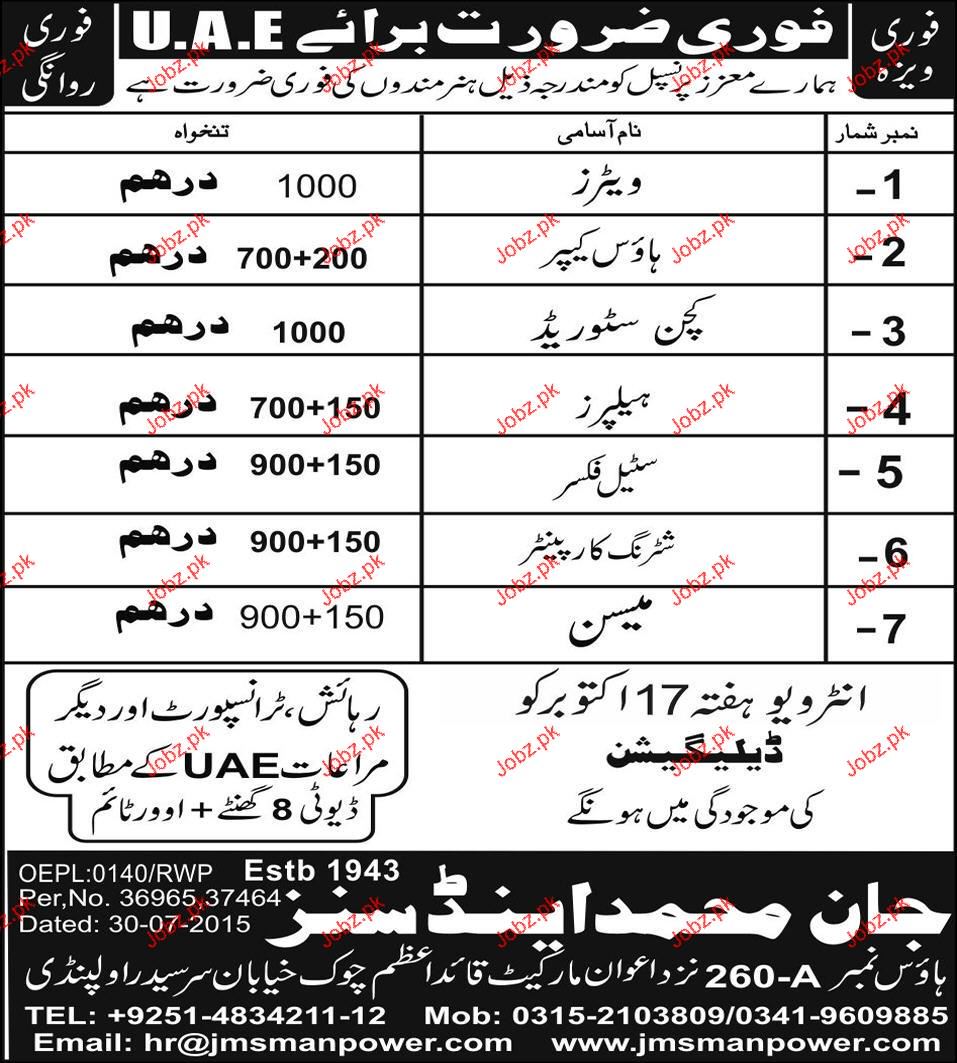 فوری ویزہ
فوری ضرورت برائے U.A.E
فوری روانگی
ہمارے معزز پرنسپل کو مندرجہ ذیل ہنرمندوں کی فوری ضرورت ہے
نمبر شمار نام آسامی تنخواہ
1- ویٹرز 1000 درهم
2- ہاؤس کیپر 700+200 درهم
3- کچن سٹوریڈ 1000 درهم
4- ہیلپرز 700+150 درهم
5- سٹیل فکسر 900+150 درهم
6- شٹرنگ کارپینٹر 900+150 درهم
7- میسن 900+150 درهم
انٹرویو ہفتہ 17 اکتوبر کو
ڈیلیگیشن
کی موجودگی میں ہونگے
رہائش، ٹرانسپورٹ اور دیگر
مراعات UAE کے مطابق
ڈیوٹی 8 گھنٹے + اوور ٹائم
OEPL:0140/RWP Estb 1943
Per,No. 36965,37464
Dated: 30-07-2015
جان محمد اینڈ سنز
ہاؤس نمبر 260-A نزد اعوان مارکیٹ قائد اعظم چوک خیابان سرسید راولپنڈی
TEL: +9251-4834211-12 Mob: 0315-2103809/0341-9609885
Email: hr@jmsmanpower.com www.jmsmanpower.com
Jobz.pk